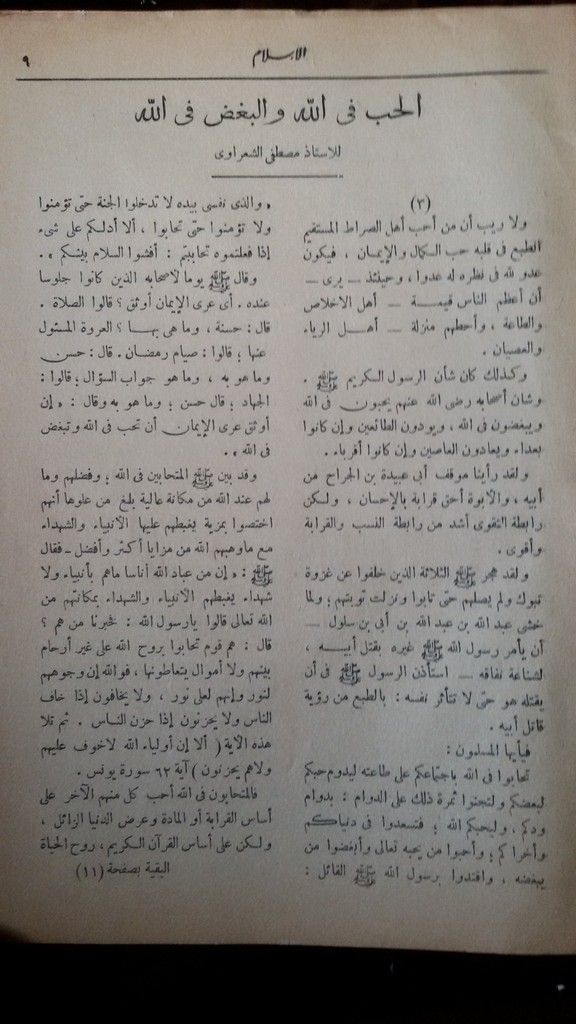 الإسلام
٩
الحب فى الله والبغض فى الله
للاستاذ مصطفى الشعراوى
(٣)
ولا ريب أن من أحب أهل الصراط المستقيم
انطبع فى قلبه حب الكمال والإيمان ، فيكون
عدو لله فى نظره له عدوا ، وحينئذ ــ يرى ــ
أن أعظم الناس قيمة ــ أهل الاخلاص
والطاعة ، وأحطهم منزلة ــ أهل الرياء
والعصيان .
وكذلك كان شأن الرسول الكريم ﷺ .
وشأن أصحابه رضى الله عنهم يحبون فى الله
ويبغضون فى الله ، ويودون الطائعين وإن كانوا
بعداء ويعادون العاصين وإن كانوا أقرباء .
ولقد رأينا موقف أبى عبيدة بن الجراح من
أبيه ، والأبوة أحق قرابة بالإحسان ، ولكن
رابطة التقوى أشد من رابطة النسب والقرابة
وأقوى .
ولقد هجر ﷺ الثلاثة الذين خلفوا عن غزوة
تبوك ولم يصلهم حتى تابوا ونزلت توبتهم ؛ ولما
خشى عبد الله بن عبد الله بن أبى بن سلول ــ
أن يأمر رسول الله ﷺ غيره بقتل أبيه ،
لشناعة نفاقه ــ استأذن الرسول ﷺ فى أن
يقتله هو حتى لا تتأثر نفسه : بالطبع من رؤية
قاتل أبيه .
فيأيها المسلمون :
تحابوا فى الله باجتماعكم على طاعته ليدوم حبكم
لبعضكم ولتجنوا ثمرة ذلك على الدوام : بدوام
ودكم ، وليحبكم الله ؛ فتسعدوا فى دنياكم
وأخراكم ؛ وأحبوا من يحبه تعالى وأبغضوا من
يبغضه ، واقتدوا برسول الله ﷺ القائل :
« والذى نفسى بيده لا تدخلوا الجنة حتى تؤمنوا
ولا تؤمنوا حتى تحابوا ، ألا أدلكم على شىء
إذا فعلتموه تحاببتم : أفشوا السلام بينكم » .
وقال ﷺ يوما لأصحابه الذين كانوا جلوسا
عنده . أى عرى الإيمان أوثق ؟ قالوا الصلاة .
قال : حسنة ، وما هى بها ؟ العروة المسئول
عنها ؛ قالوا : صيام رمضان . قال : حسن
وما هو به ، وما هو جواب السؤال ؛ قالوا :
الجهاد ؛ قال حسن ؛ وما هو به وقال : « إن
أوثق عرى الإيمان أن تحب فى الله وتبغض
فى الله » .
وقد بين ﷺ المتحابين فى الله ؛ وفضلهم وما
لهم عند الله من مكانة عالية بلغ من علوها أنهم
اختصوا بمزية يغبطهم عليها الانبياء والشهداء
مع ماوهبهم الله من مزايا أكثر وأفضل ــ فقال
ﷺ : « إن من عباد الله أناسا ماهم بأنبياء ولا
شهداء يغبطهم الانبياء والشهداء بمكانتهم من
الله تعالى قالوا يارسول الله : فخبرنا من هم ؟
قال : هم قوم تحابوا بروح الله على غير أرحام
بينهم ولا أموال يتعاطونها ، فوالله إن وجوههم
لنور وإنهم لعلى نور ، ولا يخافون إذا خاف
الناس ولا يحزنون إذا حزن الناس . ثم تلا
هذه الآية ( ألا إن أولياء الله لاخوف عليهم
ولاهم يحزنون ) آية ٦٢ سورة يونس .
فالمتحابون فى الله أحب كل منهم الآخر على
أساس القرابة أو المادة وعرض الدنيا الزائل ،
ولكن على أساس القرآن الكريم ، روح الحياة
البقية بصفحة (١١)